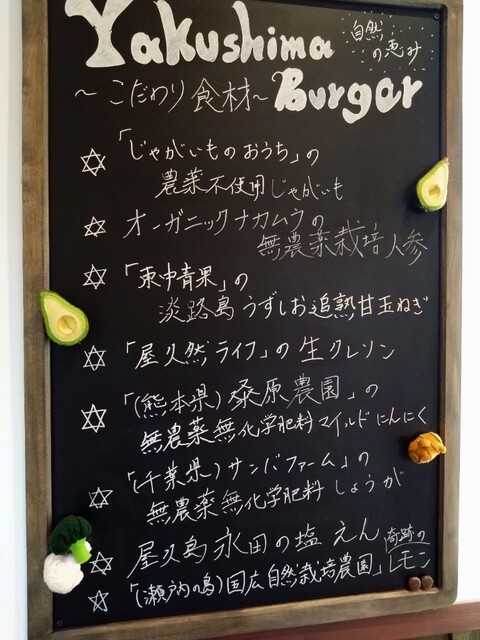 Yakushima
自然
の恵み
～こだわり食材～ Burger
☆「じゃがいものおうち」の
農薬不使用じゃがいも
☆ オーガニックナカムラの
無農薬栽培人参
☆「東中青果」の
淡路島うずしお追熟甘玉ねぎ
☆「屋久然ライフ」の生クレソン
☆「(熊本県)桑原農園」の
無農薬無化学肥料マイルドにんにく
☆「(千葉県)サンバファーム」の
無農薬無化学肥料しょうが
☆ 屋久島永田の塩 えん
☆「(瀬戸内の島)国広自然栽培農園」奇跡の
レモン